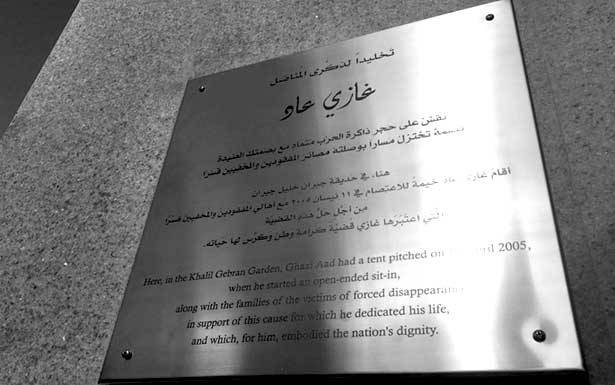 تخليداً لذكرى المناضل
غازي عاد
نقش على حجر ذاكرة الحرب متماد مع بصمتك العنيدة
بصمة تختزل مساراً بوصلته مصائر المفقودين والمخفيين قسراً
هنا، في حديقة جبران خليل جبران
أقام غازي عاد خيمة للاعتصام في ١١ نيسان ٢٠٠٥ مع أهالي المفقودين والمخفيين قسراً
من أجل حلّ هذه القضيّة
التي اعتبرها غازي قضيّة كرامة وطن وكرّس لها حياته.
Here, in the Khalil Gebran Garden, Ghazi Aad had a tent pitched on 2005,
when he started an open-ended sit-in,
along with the families of the victims of forced disappearance
in support of this cause for which he dedicated his life,
and which, for him, embodied the nation's dignity.